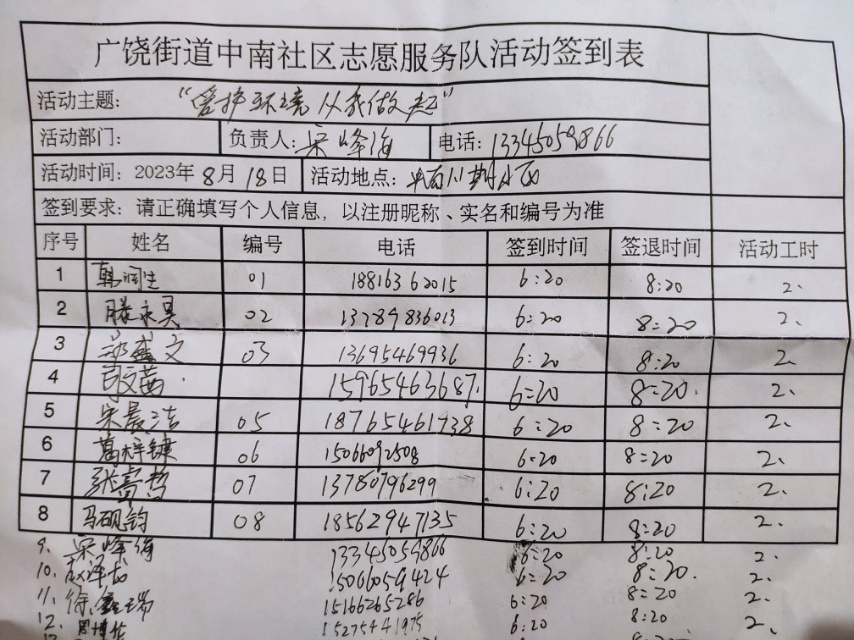 广饶街道中南社区志愿服务队活动签到表
活动主题: “爱护环境从我做起”
活动部门: 负责人: 宋峰海 电话: 13345059866
活动时间: 2023年8月18日 活动地点:
签到要求: 请正确填写个人信息, 以注册昵称、实名和编号为准
序号 姓名 编号 电话 签到时间 签退时间 活动工时
1 韩润生 01 18816362015 6:20 8:20 2.
2 滕永昊 02 13789836013 6:20 8:20 2.
3 文 03 13695469936 6:20 8:20 2.
4 15965463687. 6:20 8:20. 2.
5 宋晨洁 05 18765461938 6:20 8:20 2.
6 葛梓键 06 15066092508 6:20 8:20 2.
7 张 哲 07 13780796299 6:20 8:20 2.
8 马砚钧 08 18562947135 6:20 8:20 2.
9. 宋峰海 13345059866 6:20 8:20 2.
10. 15066059424 6:20 8:20. 2.
11. 徐 瑞 15166265286 6:20 8:20 2.
12. 周博 15275441975 6:20 8:20 2.